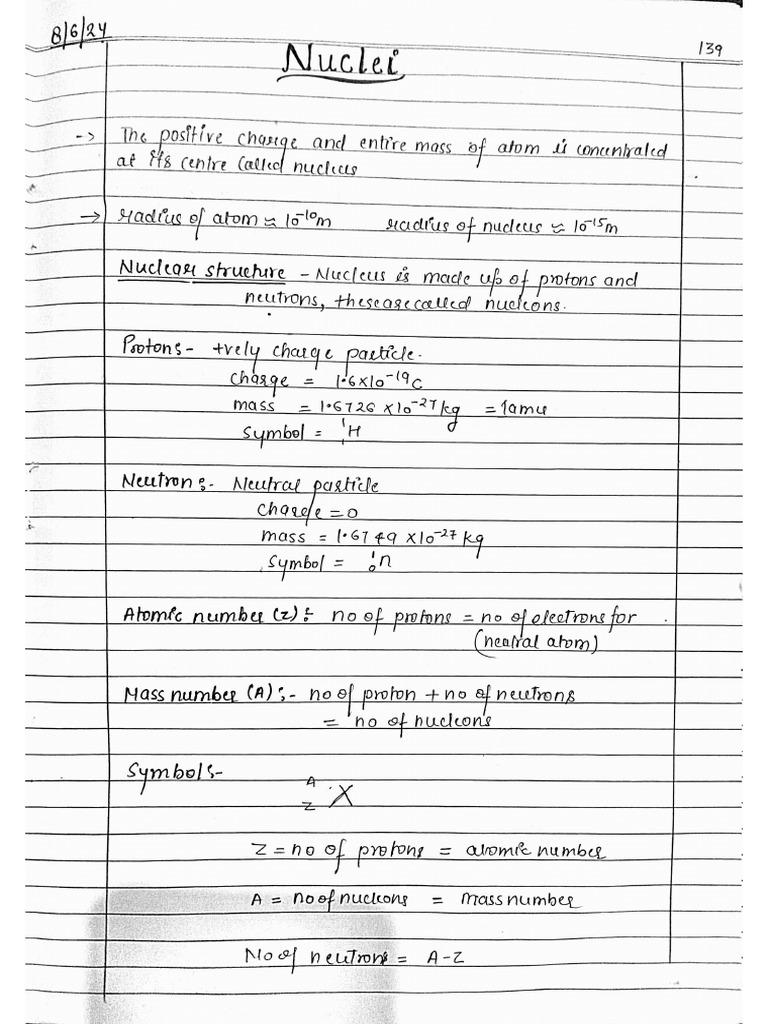 8/6/24
139
Nuclei
-> The positive charge and entire mass of atom is concentrated
at its centre called nucleus
→ radius of atom ≈ 10⁻¹⁰m radius of nucleus ≈ 10⁻¹⁵m
Nuclear structure - Nucleus is made up of protons and
neutrons, these are called nucleons.
Protons - +vely charge particle.
charge = 1.6×10⁻¹⁹C
mass = 1.6726 ×10⁻²⁷kg = 1amu
symbol = ¹₁H
Neutron:- Neutral particle
charge = 0
mass = 1.6749 ×10⁻²⁷kg
symbol = ¹₀n
Atomic number (z):- no of protons = no of electrons for
(neutral atom)
Mass number (A):- no of proton + no of neutrons
= no of nucleons
Symbol:-
A
Z X
Z = no of protons = atomic number
A = no of nucleons = mass number
No of neutrons = A-Z